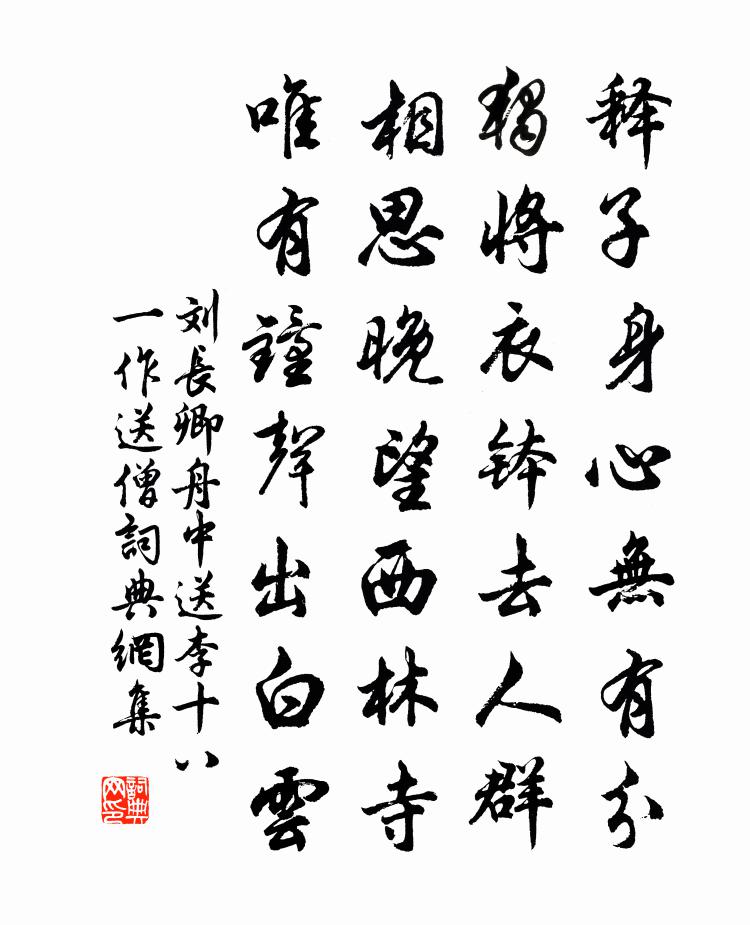 释子身心無有分
獨将衣钵去人群
相思晚望西林寺
唯有鐘聲出白雲
刘長卿舟中送李十八
一作送僧詞典網集
詞典
网印